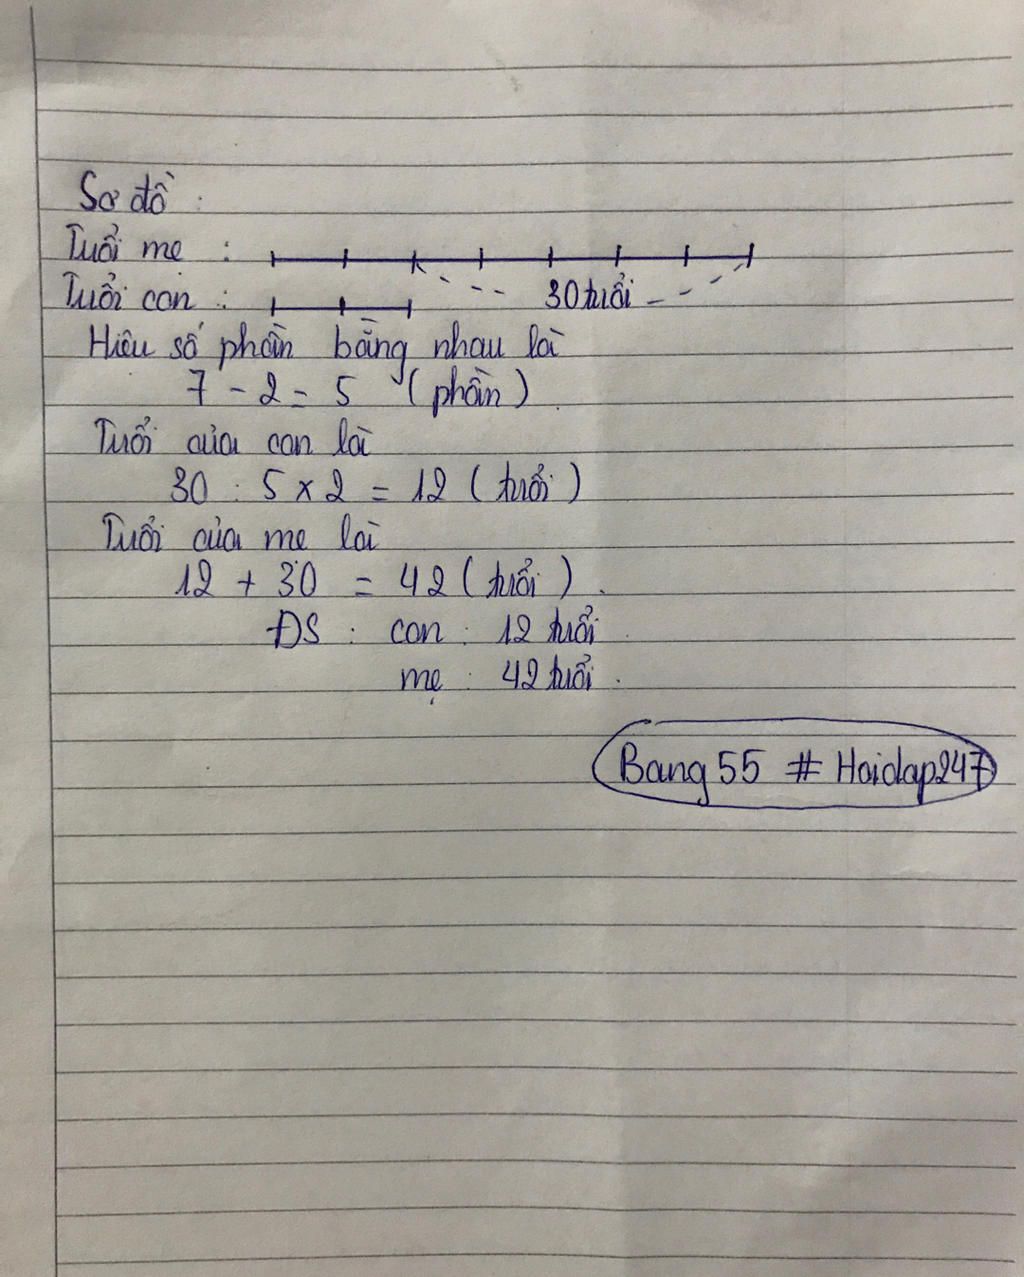 Sơ đồ :
Tuổi mẹ :
Tuổi con : 30 tuổi
Hiệu số phần bằng nhau là
7 - 2 = 5 (phần).
Tuổi của con là
30 : 5 x 2 = 12 (tuổi)
Tuổi của mẹ là
12 + 30 = 42 (tuổi).
ĐS : con : 12 tuổi
mẹ : 42 tuổi.
Bang55 # Hoidap247